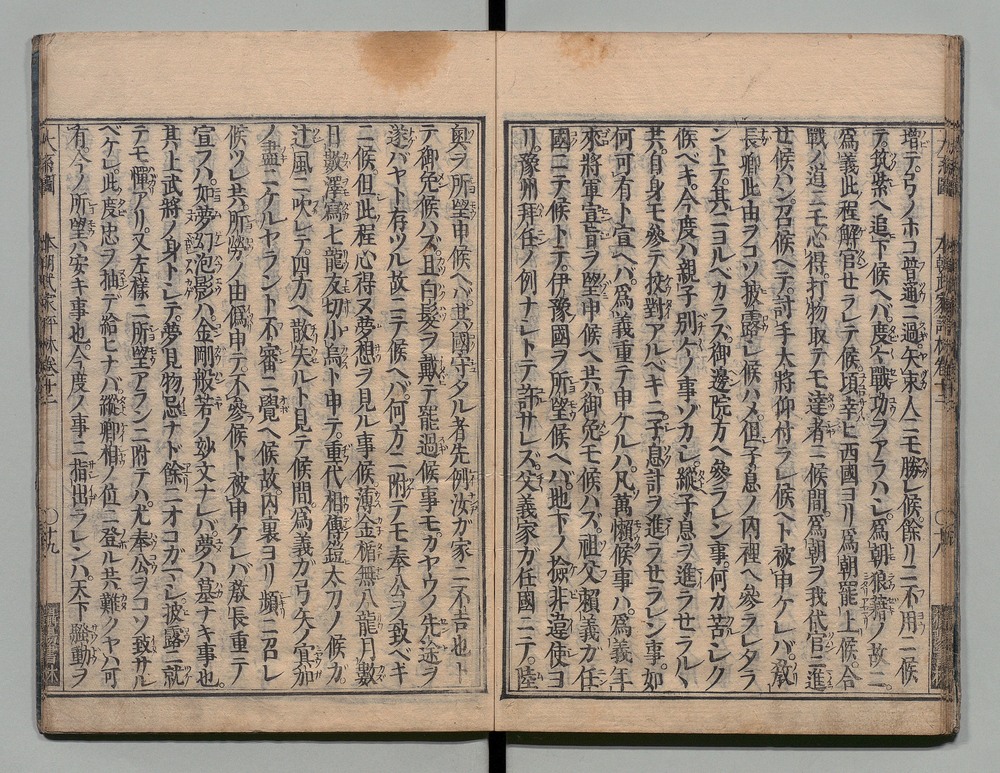 増テ弓ノホコ普通ニ過矢束人ニモ勝レ候餘リニ不用ニ候
テ筑紫ヘ追下候ヘハ度々戰功ヲアラハシ爲朝狼藉ノ故ニ
爲義此程解官セラレテ候項幸ヒ西國ヨリ爲朝罷上候合
戰ノ道ニモ心得打物取テモ達者ニ候間爲朝ヲ我代官ニ進
せ候ハン召候ヘテ討手大將仰付ラレ候ヘト被申ケレバ敎
長卿此由ヲコソ披露シ候ハメ但子息ノ内裡ヘ參ラレタラ
ントテ其ニヨルベカラズ御邊院方ヘ參ラレン事何カ苦シク
候ベキ今度ハ親子別ケノ事ゾカシ縱子息ヲ進ラせラルヽ
共自身モ參テ挍對アルベキニ子息計ヲ進ラせラレン事如
何可有ト宣ヘバ爲義重テ申ケルハ凡萬懶候事ハ爲義年
來將軍宣旨ヲ望申候ヘ共御免モ候ハズ祖父賴義ガ任
國ニテ候トテ伊豫國ヲ所望候ヘバ地下ノ檢非違使ヨ
リ豫州拜任ノ例ナシトテ許サレズ父義家ガ任國ニテ陸
奥ヲ所望申候ヘバ其國守タル者先例汝ガ家ニ不吉也ト
テ御免候ハズ且白髪ヲ戴テ罷過候事モカヤウノ先途ヲ
遂バヤト存ツル故ニテ候ヘバ何方ニ附テモ奉公ヲ致ベキ
ニ候但此程心得ヌ夢想ヲ見ル事候薄金楯無八龍月數
日數澤瀉七龍友切小烏ト申テ重代相傳鎧太刀ノ候ガ
辻風ニ吹レテ四方ヘ散失ルト見テ候間爲義ガ弓矢ノ冥加
ノ盡ニケルヤラント不審ニ覺ヘ候故内裏ヨリ頻ニ召レ
候ツレ共所勞ノ由僞申テ不參候ト被申ケレバ敎長重テ
宣フハ如夢幻泡影ハ金剛般若ノ妙文ナレバ夢ハ墓ナキ事也
其上武將ノ身トシテ夢見物忌ナド餘ニオコガマシ披露ニ就
テモ憚アリ又左樣ニ所望アランニ附テハ尤奉公ヲコソ致サル
ベケレ此度忠ヲ抽デ給ヒナバ縱卿相ノ位ニ登ル共難クヤハ可
有今ノ所望ハ安キ事也今度ノ事ニ指出ラレンハ天下騷動ヲ